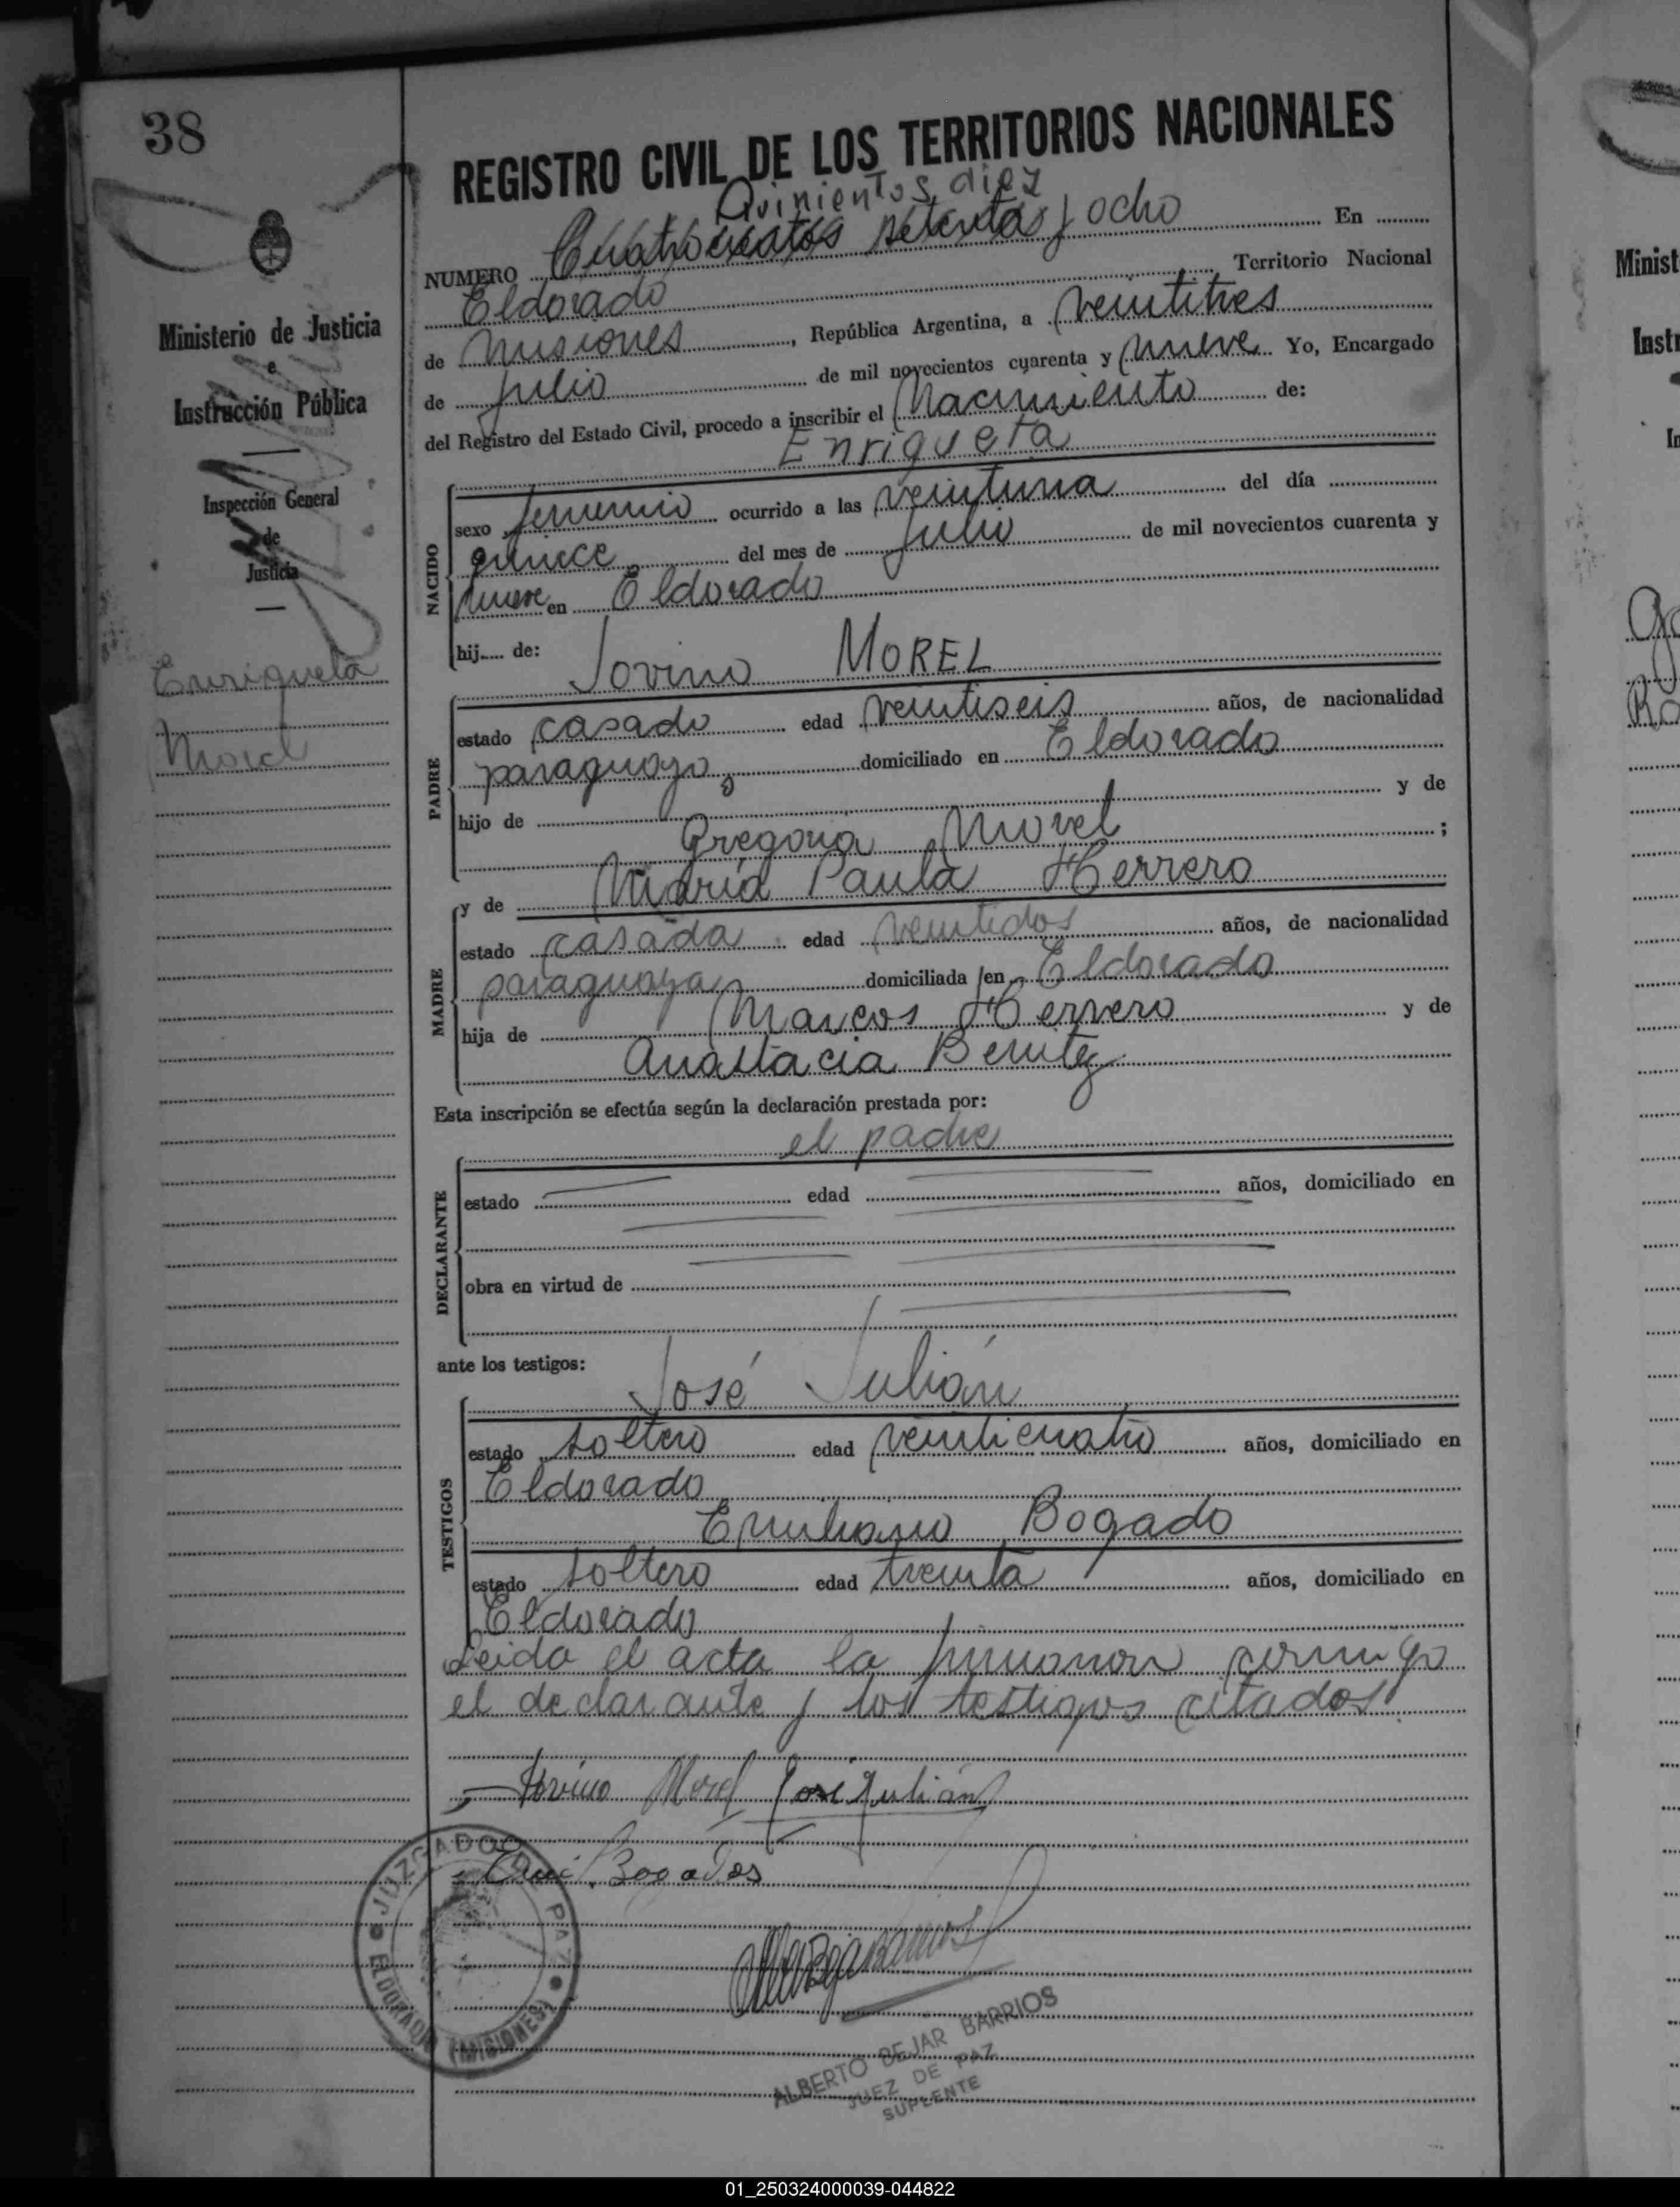 38
REGISTRO CIVIL DE LOS TERRITORIOS NACIONALES
Quinientos diez
NUMERO Cuatrocientos setenta y ocho En
Eldorado Territorio Nacional
de Misiones, República Argentina, a veintitres
de julio de mil novecientos cuarenta y nueve Yo, Encargado
del Registro del Estado Civil, procedo a inscribir el Nacimiento de:
Enriqueta
NACIDO
sexo femenino ocurrido a las veintiuna del día
quince del mes de julio de mil novecientos cuarenta y
nueve en Eldorado
hij.... de:
Jovino MOREL
PADRE
estado casado edad veintiseis años, de nacionalidad
paraguayo, domiciliado en Eldorado
hijo de y de
Gregoria Morel ;
y de María Paula Herrero
MADRE
estado casada edad veintidos años, de nacionalidad
paraguaya domiciliada en Eldorado
hija de Marcos Herrero y de
Anastacia Benitez
Esta inscripción se efectúa según la declaración prestada por:
el padre
DECLARANTE
estado edad años, domiciliado en
obra en virtud de
ante los testigos:
José Julián
TESTIGOS
estado soltero edad veinticuatro años, domiciliado en
Eldorado
Emiliano Bogado
estado soltero edad treinta años, domiciliado en
Eldorado
Leida el acta la firmaron conmigo
el declarante y los testigos citados.
Jovino Morel José Julián
Emi. Bogados
JUZGADO DE PAZ
ELDORADO (MISIONES)
ALBERTO BEJAR BARRIOS
JUEZ DE PAZ
SUPLENTE
Ministerio de Justicia
e
Instrucción Pública
Inspección General
de
Justicia
Enriqueta
Morel
Minist
Inst
In
01_250324000039-044822